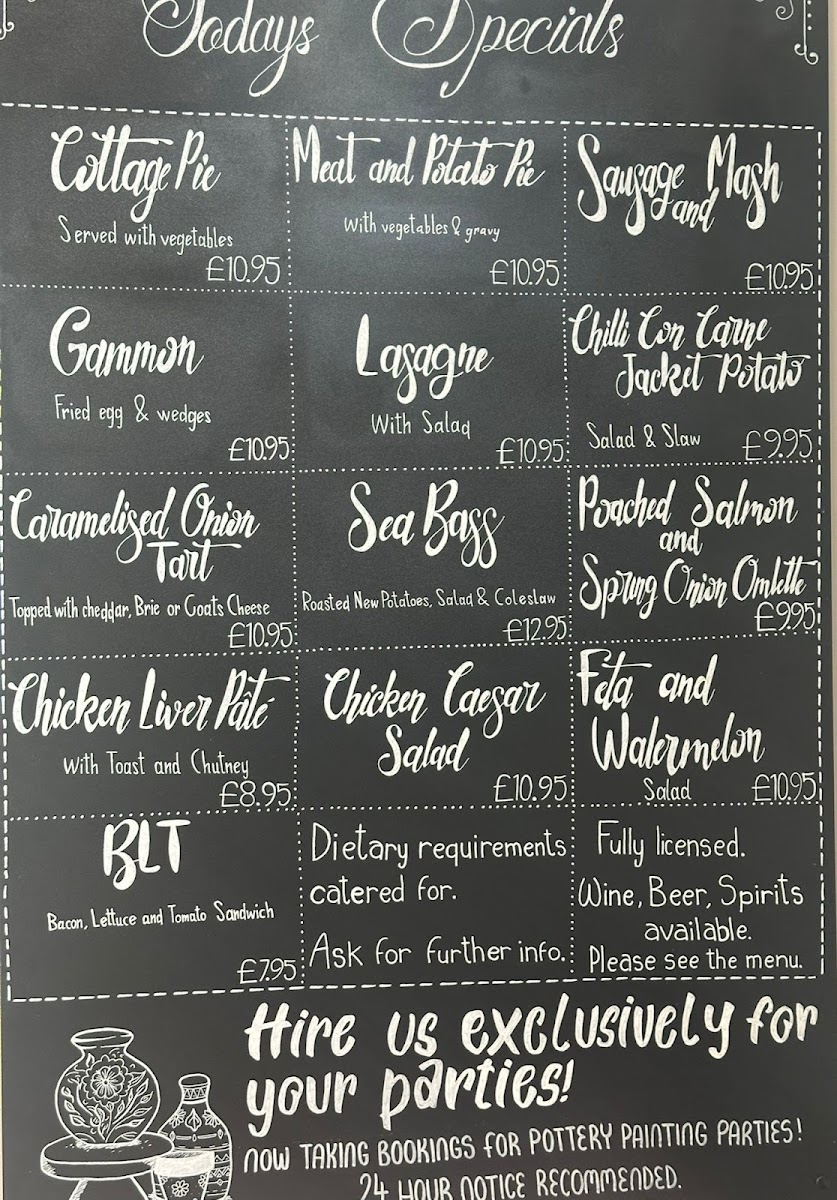 Todays Specials
Cottage Pie
Served with vegetables
£10.95
Meat and Potato Pie
with vegetables & gravy
£10.95
Sausage and Mash
£10.95
Gammon
Fried egg & wedges
£10.95
Lasagne
With Salad
£10.95
Chilli Con Carne
Jacket Potato
Salad & Slaw £9.95
Caramelised Onion
Tart
Topped with cheddar, Brie or Goats Cheese
£10.95
Sea Bass
Roasted New Potatoes, Salad & Coleslaw
£12.95
Poached Salmon
and
Spring Onion Omlette
£9.95
Chicken Liver Pâté
With Toast and Chutney
£8.95
Chicken Caesar
Salad
£10.95
Feta and
Watermelon
Salad £10.95
BLT
Bacon, Lettuce and Tomato Sandwich
£7.95
Dietary requirements
catered for.
Ask for further info.
Fully licensed.
Wine, Beer, Spirits
available.
Please see the menu.
Hire us exclusively for
your parties!
NOW TAKING BOOKINGS FOR POTTERY PAINTING PARTIES!
24 HOUR NOTICE RECOMMENDED.